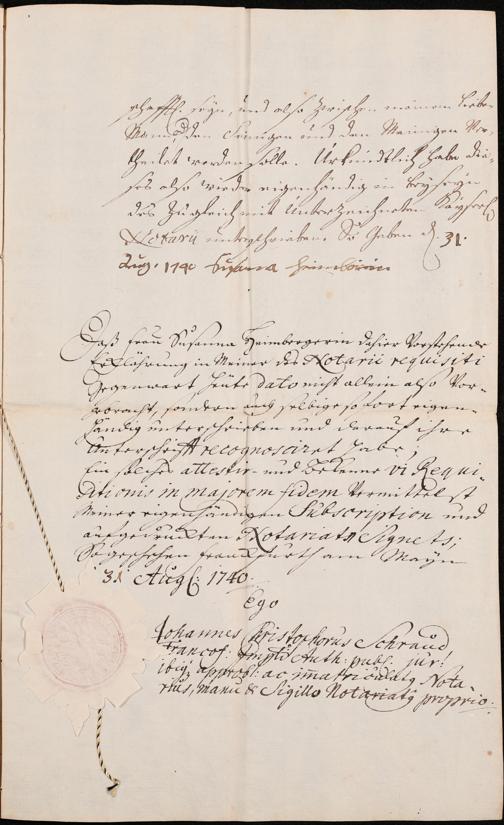 seyn, und also zwischen meinem lieben
Mann, den Seinigen und den Meinigen Ver-
theilet werden solle. Urkundlich habe die-
ses also wieder eigenhändig in beyseyn
des zugleich mit Unterzeichneten Kayserl.
Notarii unterschrieben. So geben d. 31.
Aug. 1740 Susanna Heimbergerin
Daß Frau Susanna Heimbergerin dahier Vorstehende
Erklährung in Meiner des Notarii requisiti
Gegenwart heute dato nicht allein also Vor-
gebracht, sondern auch selbige sofort eigen-
händig unterschrieben und darauf ihre
Unterschrifft recognosciret habe;
Ein solches attestir- und bekenne vi Requi-
sitionis in majorem fidem Vermittelst
Meiner eigenhändigen Subscription und
aufgedruckten Notariats Signets;
So geschehen Franckfurth am Mayn
31 Aug: 1740.
Ego
Johannes Christophorus Schraud
Francof: Auth: publ: jur:
ibiq approb: ac immatriculatq Nota-
rius, manu & Sigillo Notariatq proprio.